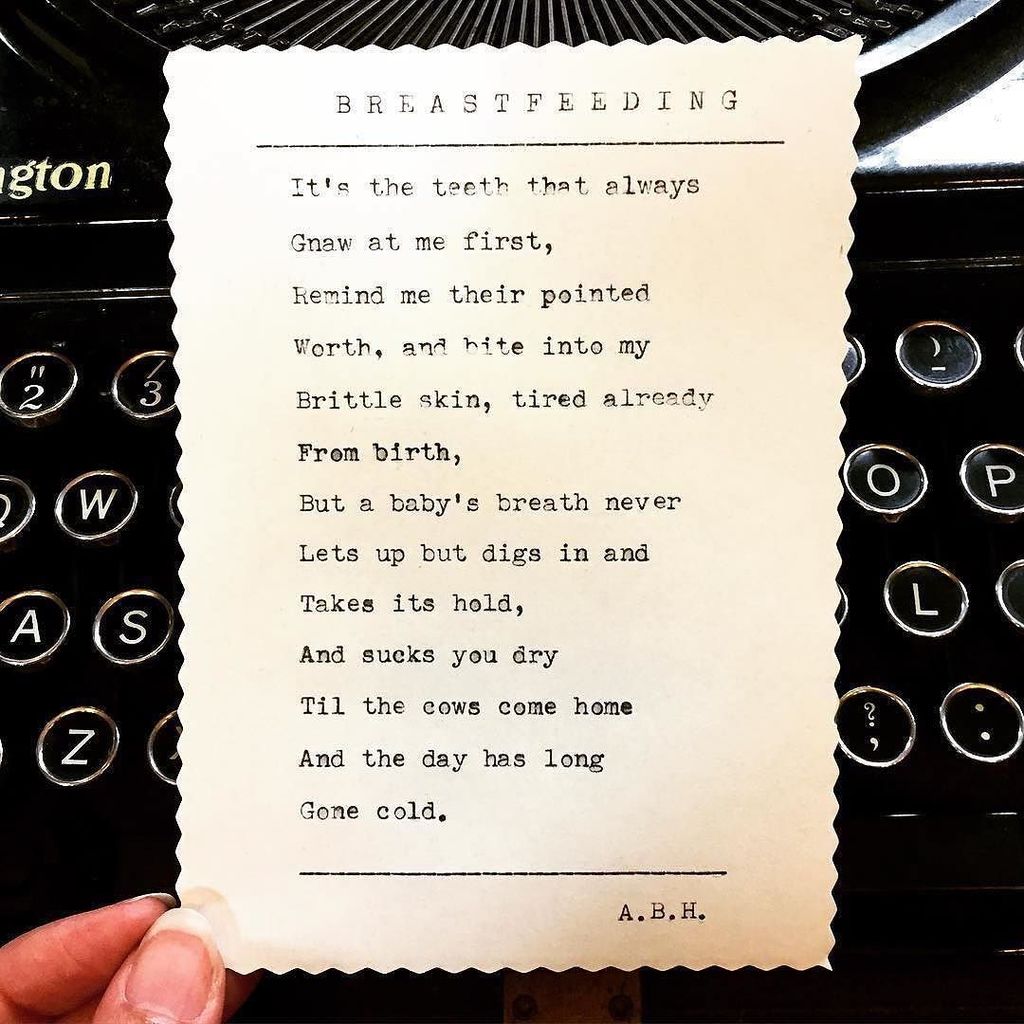 BREASTFEEDING
It's the teeth that always
Gnaw at me first,
Remind me their pointed
Worth, and bite into my
Brittle skin, tired already
From birth,
But a baby's breath never
Lets up but digs in and
Takes its hold,
And sucks you dry
Til the cows come home
And the day has long
Gone cold.
A.B.H.
gton
" 2 ' 3
) -
Q W O P
A S L
Z ? ; : .